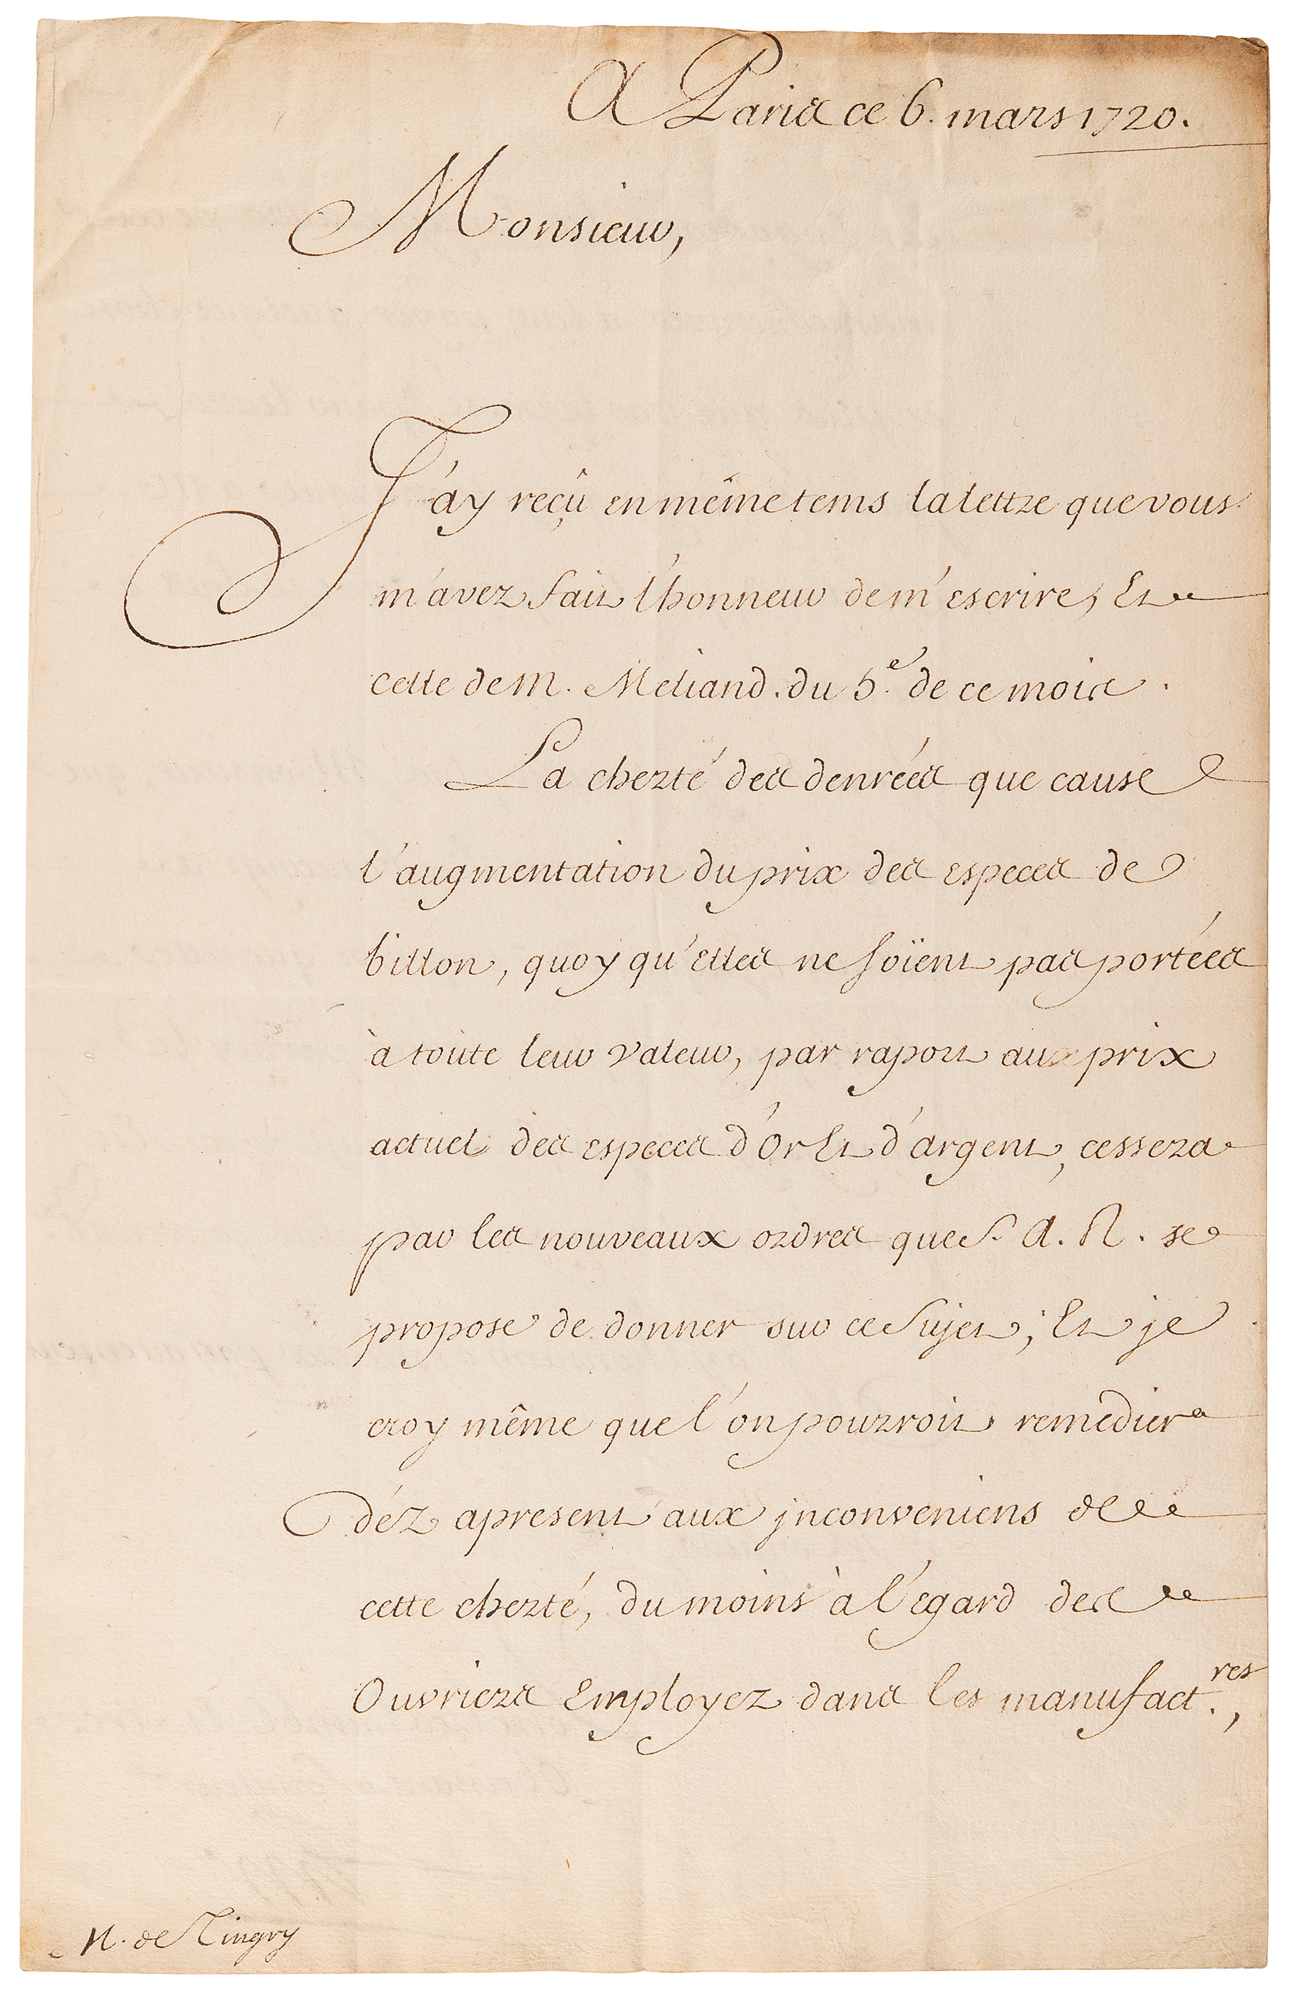 A Paris ce 6. mars 1720.
Monsieur,
J'ay reçû en même tems la lettre que vous
m'avez fait l'honneur de m'escrire, Et
celle de M. Meliand. du 5.e de ce mois.
La cherté des denrées que cause
l'augmentation du prix des especes de
billon, quoy qu'Elles ne soïent pas portées
à toute leur valeur, par raport au prix
actuel des especes d'Or Et d'argent, cessera
par les nouveaux ordres que S. A. R. se
propose de donner sur ce sujet; Et je
croy même que l'on pourroit remedier
déz apresent aux jnconveniens de
cette cherté, du moins à l'égard des
Ouvriers Employez dans les manufact.res,
M. de Tingry